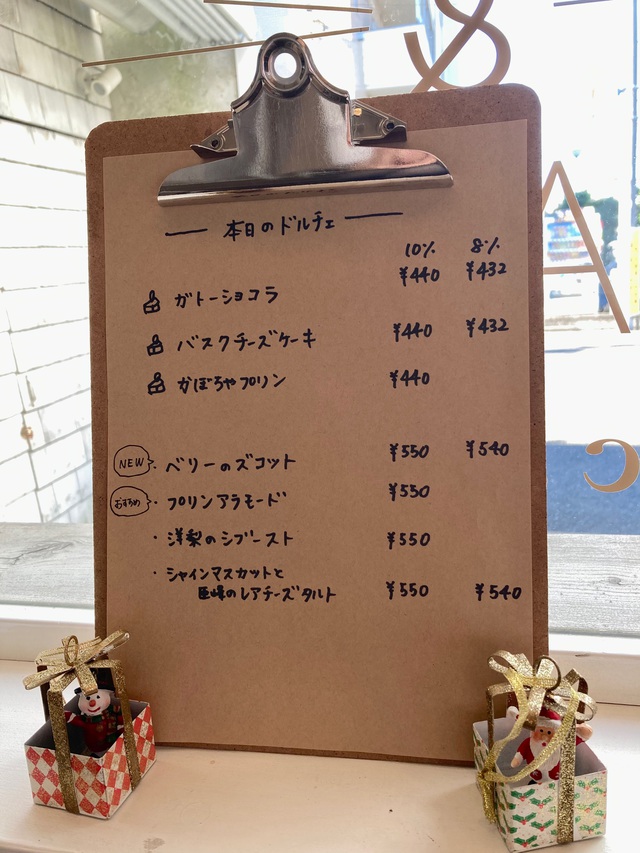 &
A
本日のドルチェ
10% 8%
ガトーショコラ ¥440 ¥432
バスクチーズケーキ ¥440 ¥432
かぼちゃプリン ¥440
NEW ベリーのズコット ¥550 ¥540
おすすめ プリンアラモード ¥550
・洋梨のシブースト ¥550
・シャインマスカットと
巨峰のレアチーズタルト ¥550 ¥540